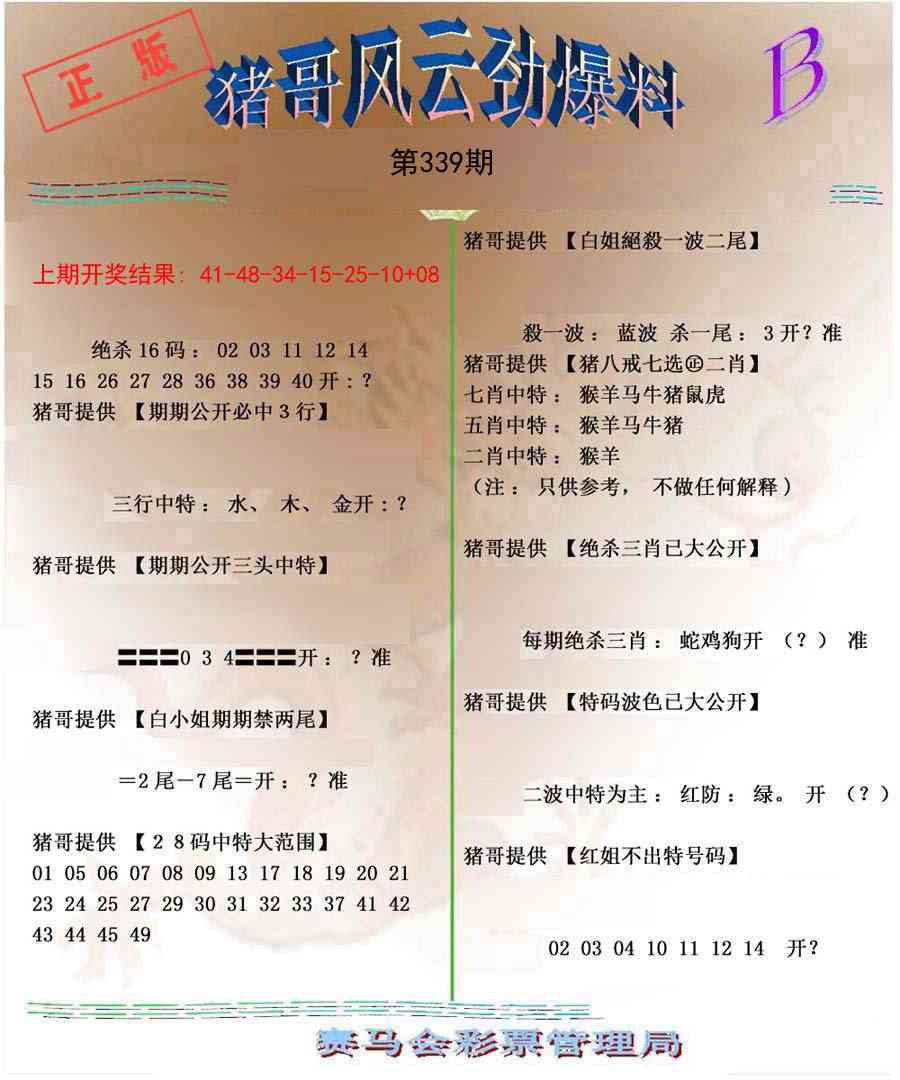 正版
猪哥风云劲爆料
B
第339期
上期开奖结果: 41-48-34-15-25-10+08
绝杀16码： 02 03 11 12 14
15 16 26 27 28 36 38 39 40开:？
猪哥提供 【期期公开必中3行】
三行中特： 水、 木、 金开:？
猪哥提供 【期期公开三头中特】
〓〓〓0 3 4〓〓〓开： ？准
猪哥提供 【白小姐期期禁两尾】
＝2尾－7尾＝开： ？准
猪哥提供 【２８码中特大范围】
01 05 06 07 08 09 13 17 18 19 20 21
23 24 25 27 29 30 31 32 33 37 41 42
43 44 45 49
猪哥提供 【白姐絕殺一波二尾】
殺一波： 蓝波 杀一尾： 3开？准
猪哥提供 【猪八戒七选㊣二肖】
七肖中特： 猴羊马牛猪鼠虎
五肖中特： 猴羊马牛猪
二肖中特： 猴羊
（注： 只供参考， 不做任何解释)
猪哥提供 【绝杀三肖已大公开】
每期绝杀三肖： 蛇鸡狗开 （？） 准
猪哥提供 【特码波色已大公开】
二波中特为主： 红防： 绿。 开 （？）
猪哥提供 【红姐不出特号码】
02 03 04 10 11 12 14 开?
赛马会彩票管理局